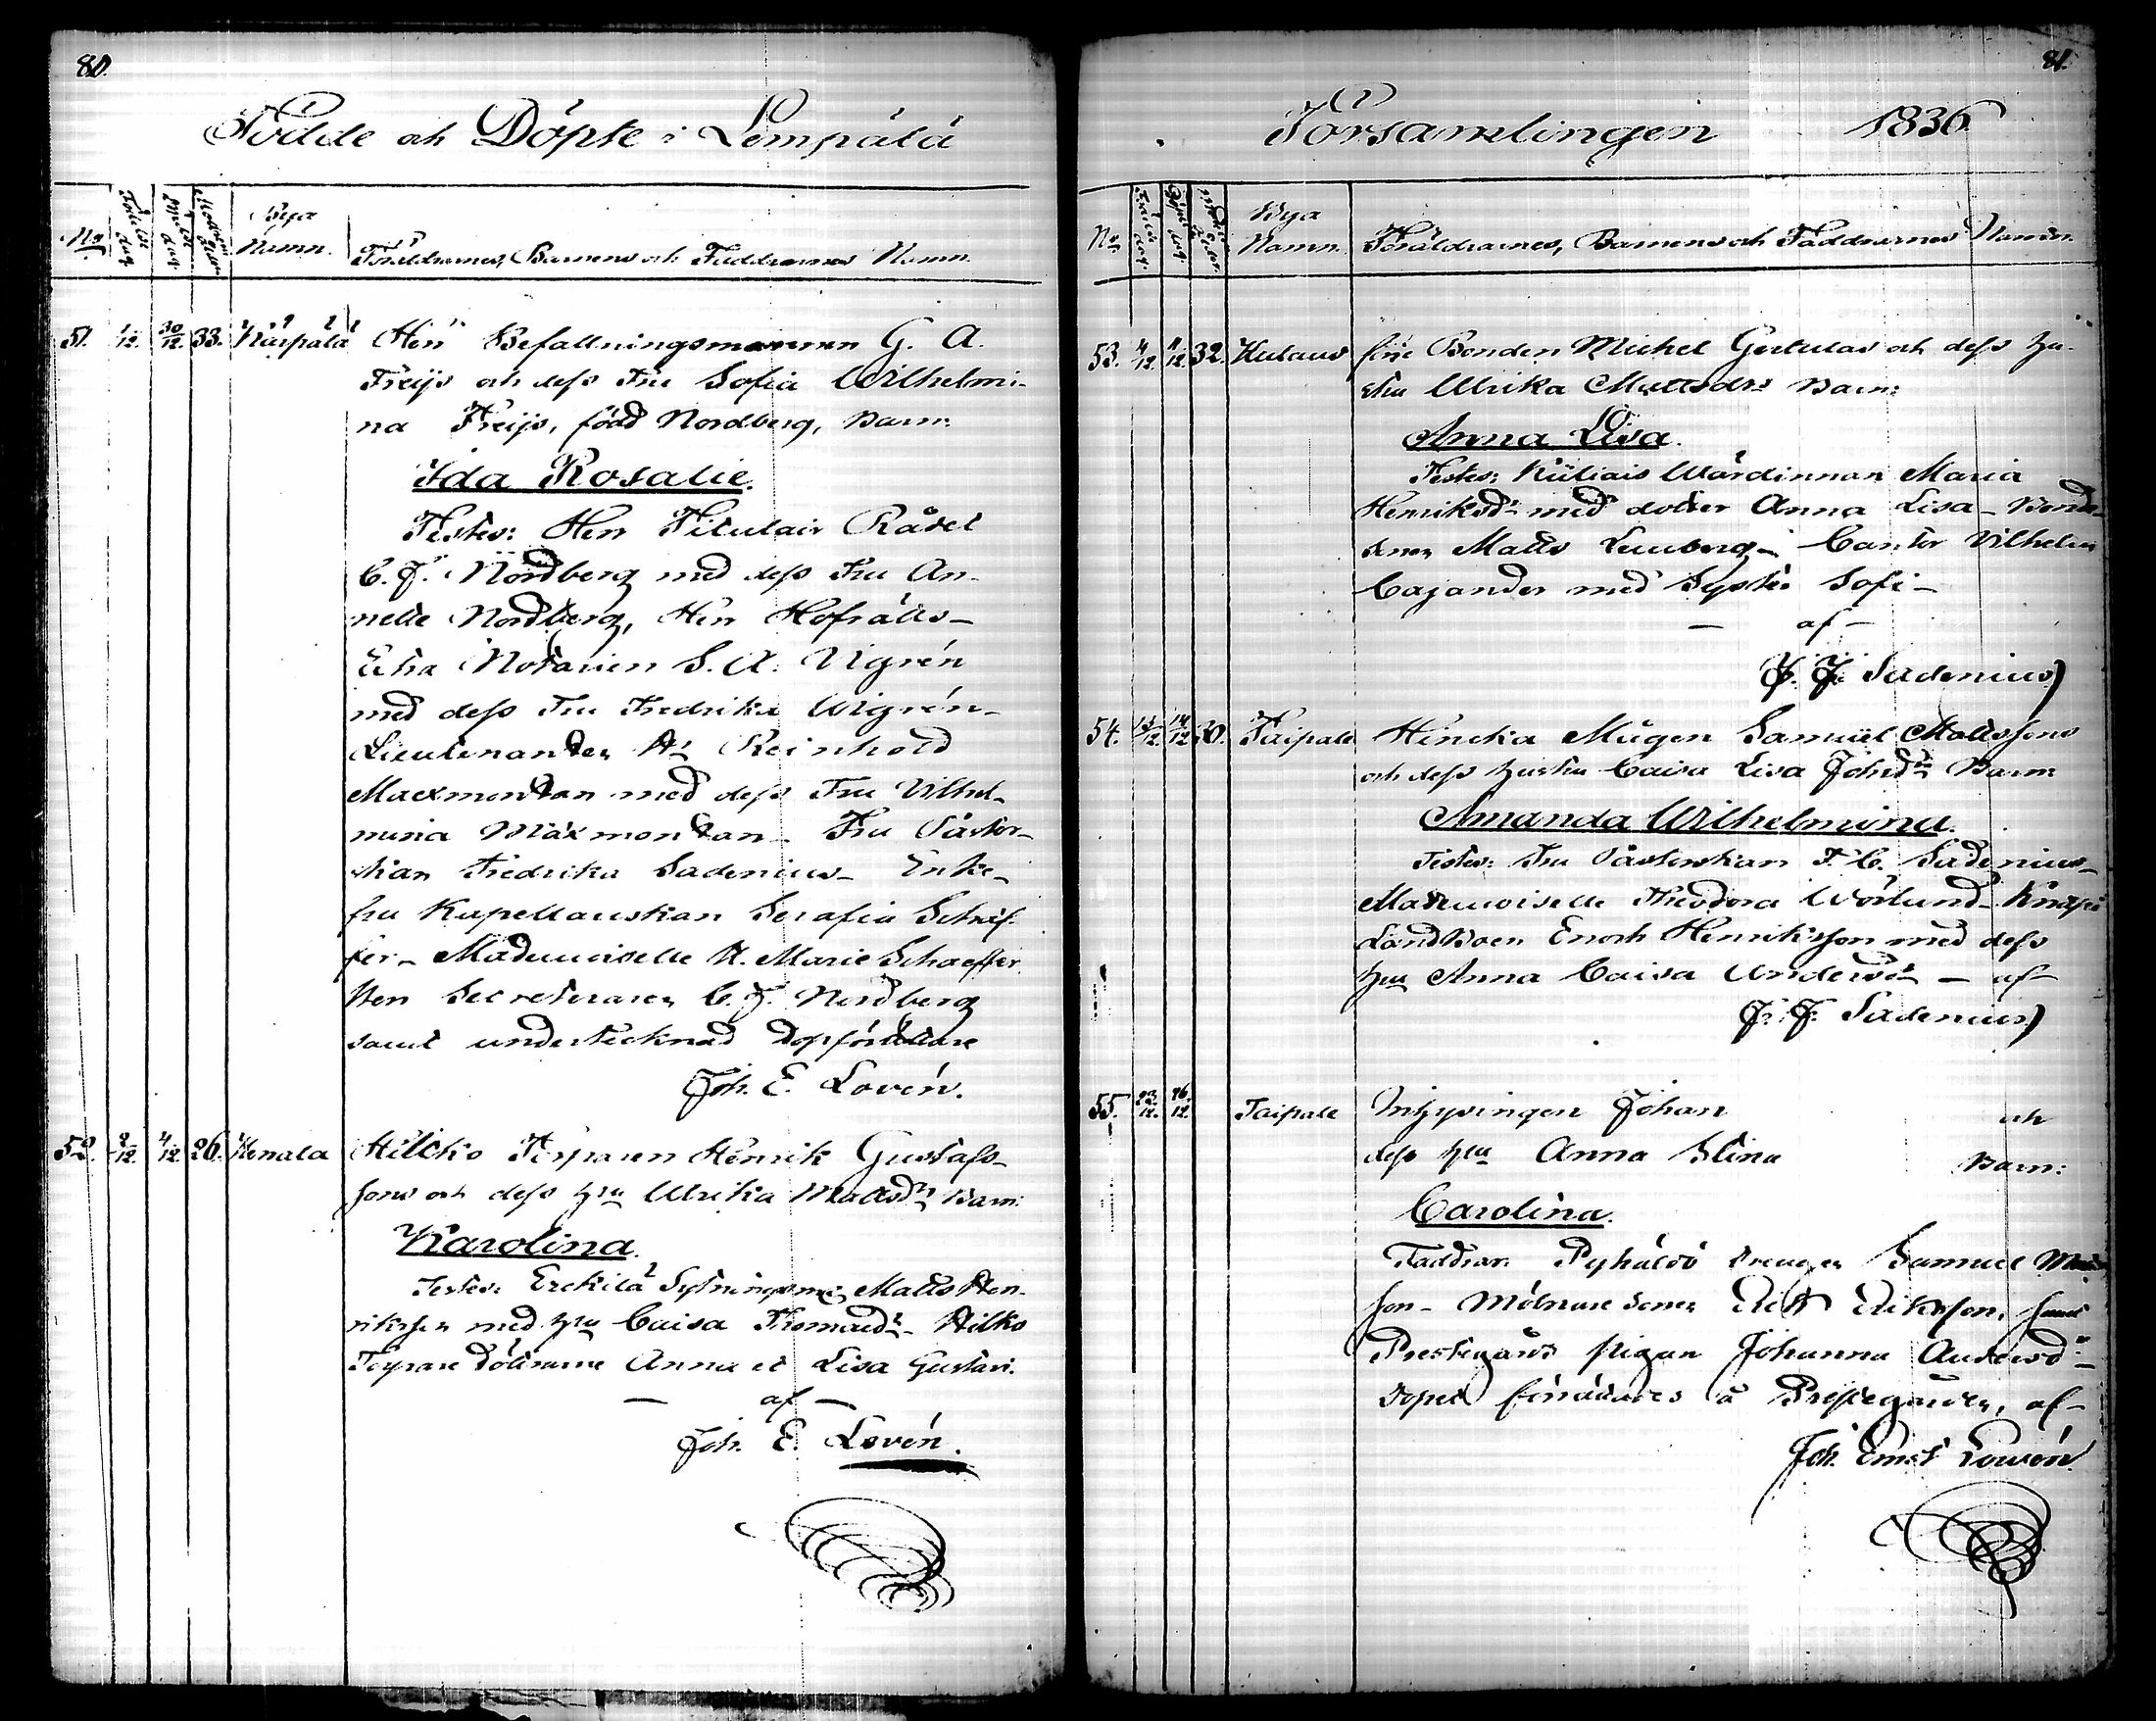 80.
Födde och Döpte i Lempälä
No
Födelse dag
Döpelse dag
Modrens ålder
Bya Namn.
Föräldrarnes, Barnens och Faddrarnes Namn.
51. 1/12. 30/12. 33. Härpälä Herr Befallningsmannen G. A.
Freijs och dess Fru Sofia Wilhelmi-
na Freijs, född Nordberg, Barn:
Ida Rosalie.
Testes: Herr Titulair Rådet
C. J. Nordberg med dess Fru An-
nette Nordberg, Herr Hofrätts-
Extra Notarien S. A. Vigrén
med dess Fru Fredrika Wigrén-
Lieutenanten Hr Reinhold
Maexmontan med dess Fru Vilhel-
mina Mäxmontan- Fru Pastor-
skan Fredrika Sadenius- Enke-
fru Kapellanskan Serafia Schäf-
fer- Mademoiselle A. Marie Schaeffer
Herr Secreteraren C. J. Nordberg
samt undertecknad Dopförrättare
Joh. E. Lovén.
52. 2/12. 4/12. 26. Henala Hilcko Torparen Henrik Gustafs-
sons och dess hru Ulrika Mattsdr Barn:
Karolina.
Testes: Erckilä Sytningsm: Matts Hen-
riksson med hru Caisa Thomasdr- Hilko
Torpare döttrarne Anna et Lisa Gustavi.
— af —
Joh. E. Lovén.
81.
Församlingen 1836
No
Födelse dag.
Döpelse dag.
Modrens ålder.
Bya Namn.
Föräldrarnes, Barnens och Faddrarnes Namn.
53. 4/12. 11/12. 32. Kulaus Bonden Michel Gertulas och dess hu-
stru Ulrika Mattsdrs Barn:
Anna Lisa.
Testes: Wärdinnan Maria
Henriksdr med dotter Anna Lisa- Bonde-
sonen Matts Leuberg- Cantor Vilhelm
Cajander med Syster Sofi-
— af —
J. J. Sadenius)
54. 13/12. 14/12. 30. Taipale Hencka Mågen Samuel Mattssons
och dess hustru Caisa Lisa Johsdrs Barn:
Amanda Wilhelmina.
Testes: Fru Pastorskan F. C. Sadenius-
Mademoiselle Theodora Wörlund-
Landboen Enoch Henriksson med dess
hru Anna Caisa Andersdr — af
J. J. Sadenius)
55. 23/12. 26/12. Taipale Inhysingen Johan och
dess hru Anna Stina Barn:
Carolina.
Faddrar: Pyhältö drengen Samuel
son- Mölnare sonen Erik Eriksson, samt
Prestegårds pigan Johanna Andersdr-
dopet förrättades å Prestegården, af-
Joh. Ernst Lovén.